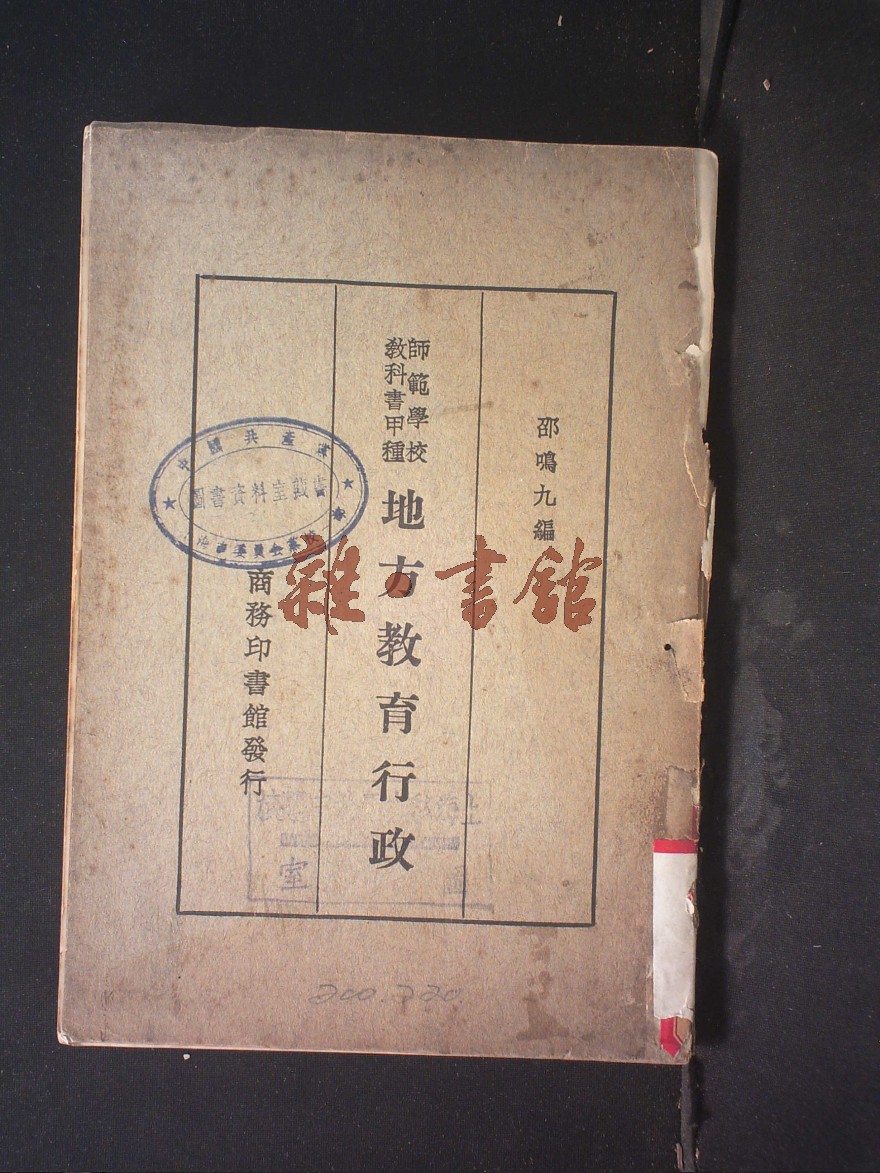 邵鳴九編
師範學校
教科書甲種
地方教育行政
商務印書館發行
中國共產黨
圖書資料室
雜·書館
室
200.220